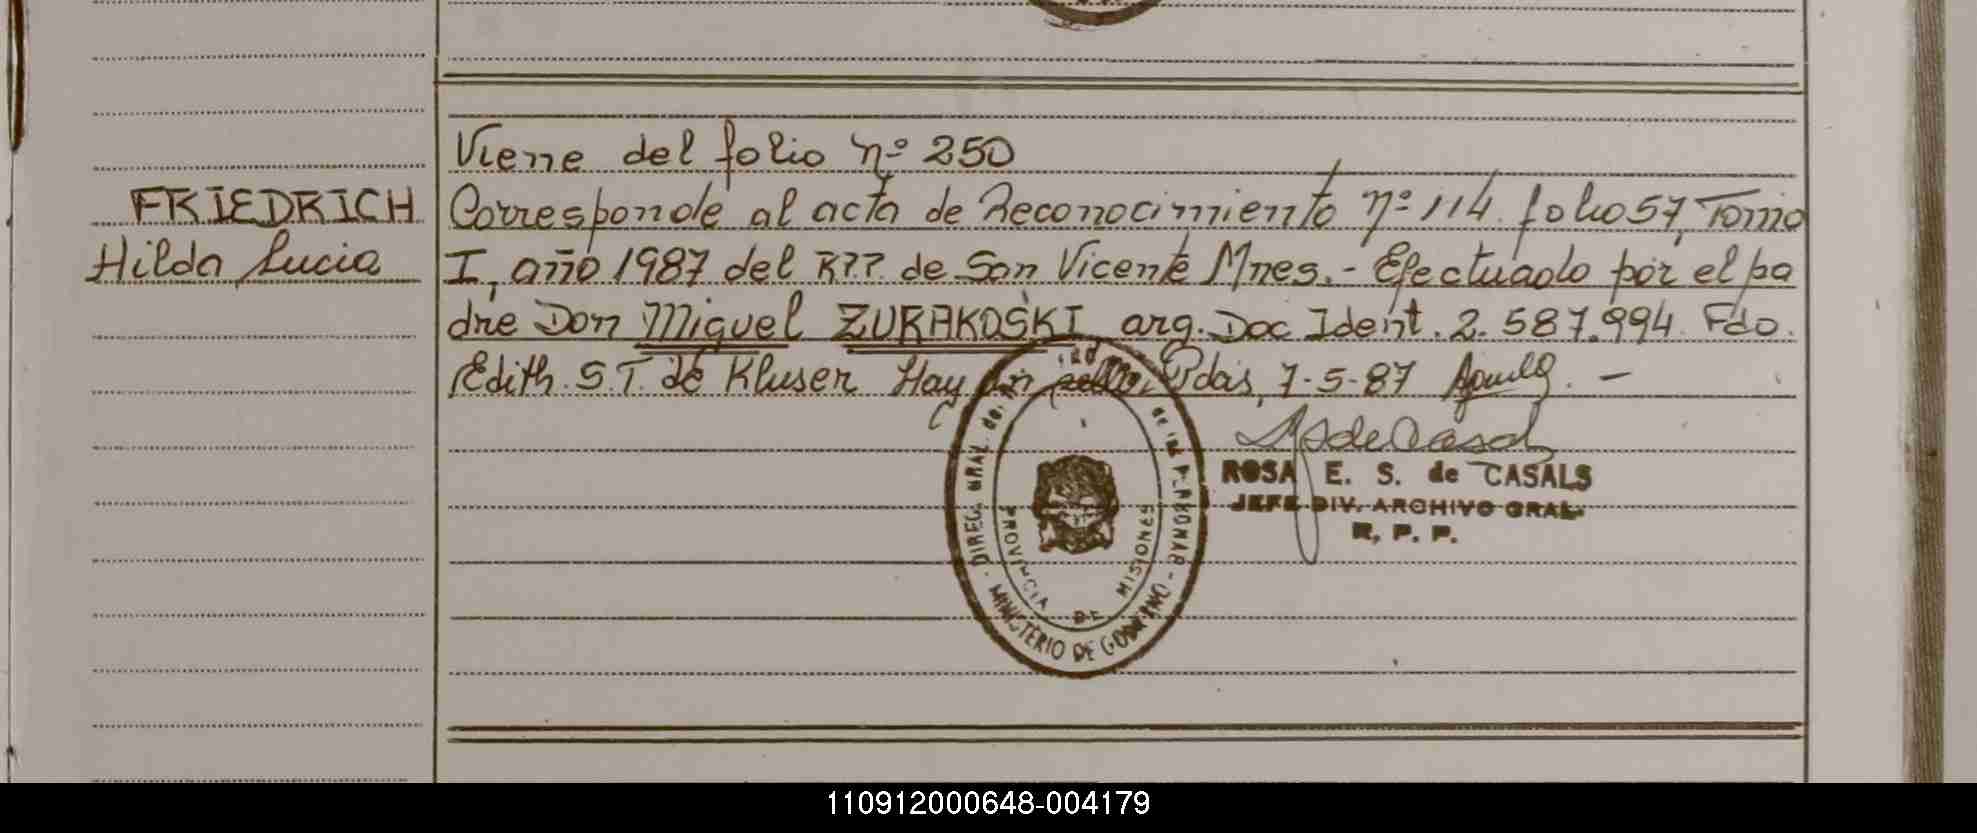 Viene del folio nº 250
FRIEDRICH
Hilda Lucia
Corresponde al acta de Reconocimiento nº 114. folio 57, Tomo
I, año 1987 del R.P.P. de San Vicente Mnes.- Efectuado por el pa
dre Don Miguel ZURAKOSKI arg. Doc Ident. 2.587.994. Fdo.
Edith. S.T. de Kluser Hay un sello. Pdas, 7-5-87
ROSA E. S. de CASALS
JEFE DIV. ARCHIVO GRAL.
R. P. P.
DIREC. GRAL. del de las PERSONAS - MINISTERIO DE GOBIERNO -
PROVINCIA DE MISIONES
110912000648-004179